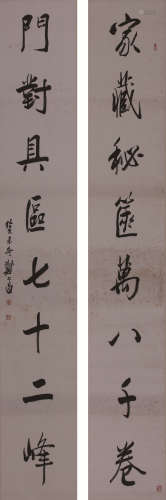 家藏秘笈萬八千卷
門對具區七十二峰